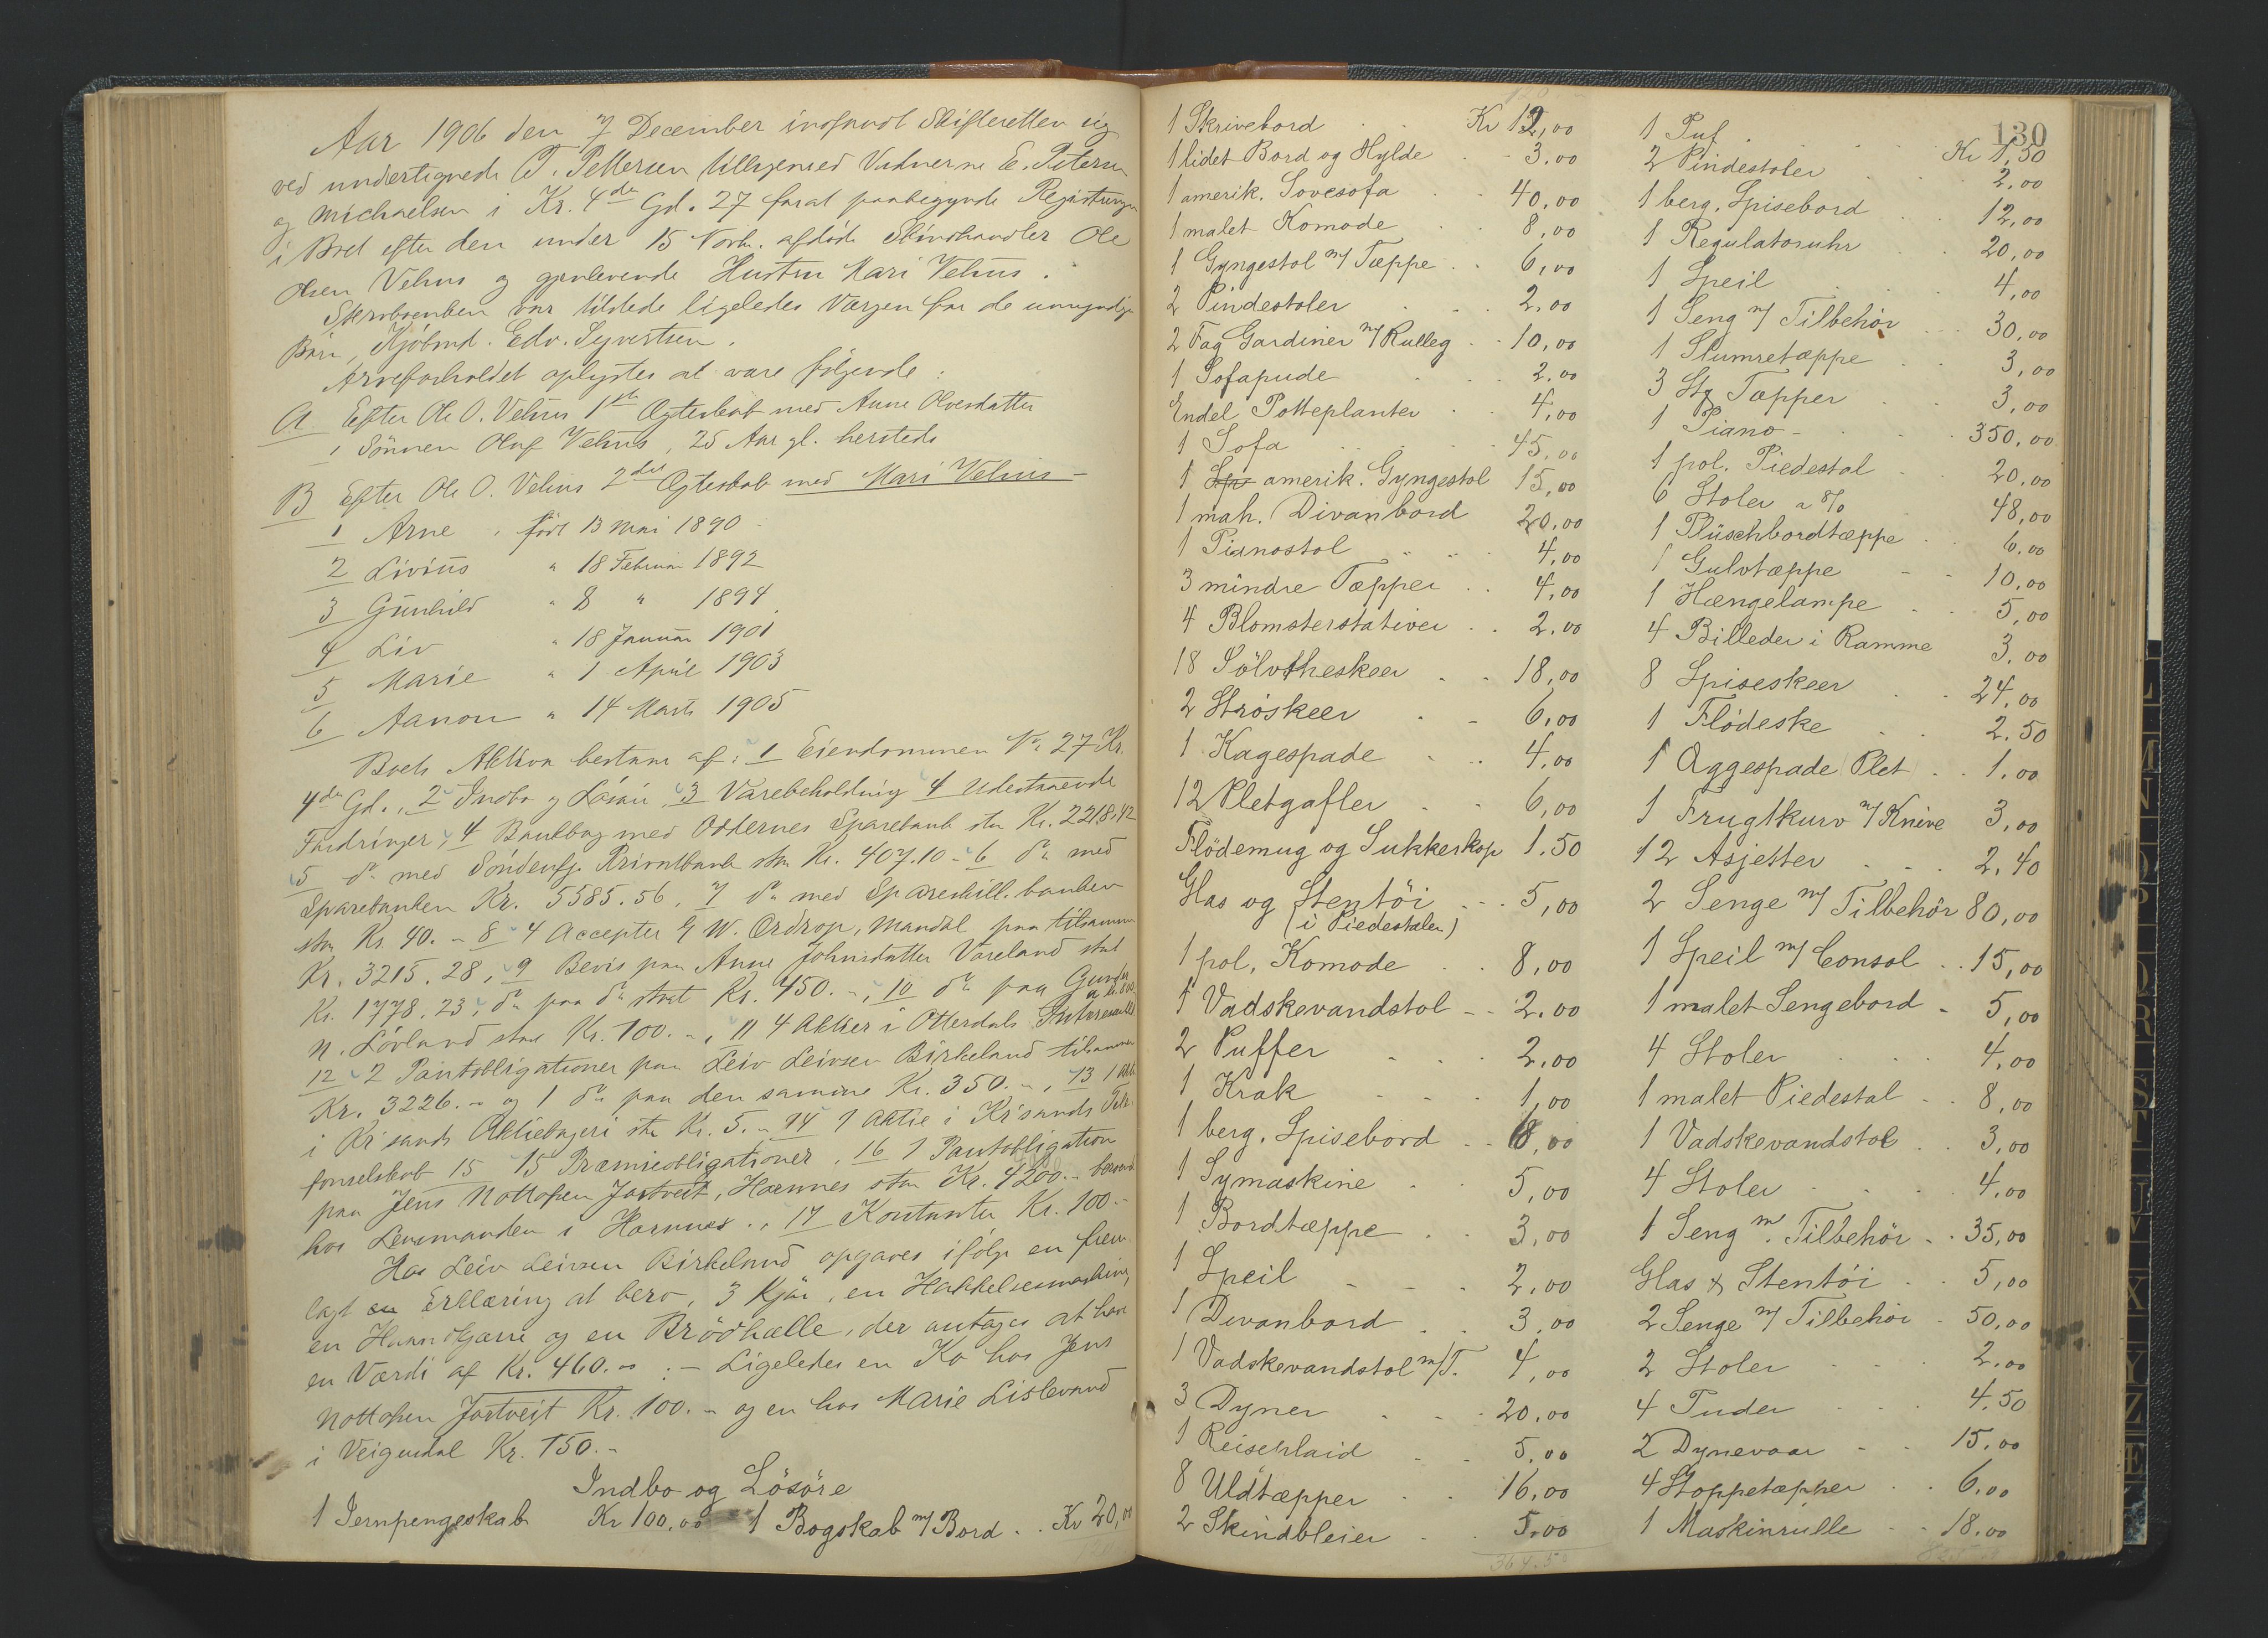 Aar 1906 den 7 December indfandt Skifteretten sig
ved undertegnede T. Pettersen tilligemed Vidnerne E. Petersen
og Michaelsen i Kr. 4de Gd. 27 forat paabegynde Registreringen
i Boet efter den under 15 Novbr. afdöde Skindhandler Ole
Olsen Vehus og gjenlevende Hustru Mari Vehus.
Sterboenken var tilstede ligeledes Værgen for de umyndige
Börn, Kjöbmd. Edv. Syvertsen.
Arveforholdet oplystes at være følgende:
A Efter Ole O. Vehus 1ste Ægteskab med Anne Olvesdatter
1 Sönnen Oluf Vehus, 25 Aar gl. hersteds
B Efter Ole O. Vehus 2det Ægteskab med Mari Vehus -
1 Arne, født 13 Mai 1890 -
2 Livius " 18 Februar 1892
3 Gunhild " 8 " 1894
4 Liv " 18 Januar 1901
5 Marie " 1 April 1903
6 Aanon " 14 Marts 1905
Boets Aktiva bestaar af: 1 Eiendommen No 27 Kr.
4de Gd., 2 Indbo og Løsøre, 3 Varebeholdning 4 Udestaaende
Fordringer, 4 Bankbog med Oddernes Sparebank stor Kr. 2218,42
5 do med Söndenfj. Privatbank stor Kr. 407.10 - 6 do med
Sparebanken Kr. 5585.56, 7 do med Spareskill.banken
stor Kr. 40. - 8 4 Accepter G W. Ordrop, Mandal paa tilsammen
Kr. 3215.28, 9 Bevis paa Anne Johnsdatter Vareland stort
Kr. 1778.23, do paa do stort Kr. 450. -, 10 do paa Gunder
N. Lövland stor Kr. 100. -, 11 4 Aktier i Otterdals
12 2 Pantobligationer paa Leiv Leivsen Birkeland tilsammen
Kr. 3226. - og 1 do paa den samme Kr. 350. -, 13 1 Akt.
i Kr'sands Aktiebryeri stor Kr. 5. - 14 1 Aktie i Kr'sands Tele
fonselskab 15 15 Præmieobligationer, 16 1 Pantobligation
paa Jens Nottosen Jortveit, Hornnes stor Kr. 4200. - beroende
hos Lensmanden i Hornnes., 17 Kontanter Kr. 100. -
Hos Leiv Leivsen Birkeland opgaves ifölge en frem
lagt Erklæring at bero, 3 Kjör, en Hakkelsesmaskine,
en Haandkjærre og en Brödhælle, der antages at have
en Værdi af Kr. 460. - : - Ligeledes en Ko hos Jens
Nottosen Jortveit Kr. 100. - og en hos Marie Lislevand
i Veigusdal Kr. 150. -
Indbo og Lösöre
1 Jernpengeskab Kr 100,00 1 Bogskab m/ Bord . . Kr 20,00
1 Skrivebord . . Kr 12,00
1 lidet Bord og Hylde . - 3.00
1 amerik. Sovesofa . . 40,00
1 malet Komode . . 8,00
1 Gyngestol m/ Tæppe . . 6,00
2 Pindestoler . . . 2,00
2 Fag Gardiner m/ Rulleg . . 10,00
1 Sofapude . . . 2.00
Endel Potteplanter . . 4,00
1 Sofa . . . 45,00
1 Sp amerik. Gyngestol 15,00
1 mah. Divanbord 20,00
1 Pianostol . . . 4,00
3 mindre Tæpper . . 4,00
4 Blomsterstativer . . 2.00
18 Sölvtheskeer . . 18,00
2 Ströskeer . . 6,00
1 Kagespade . . 4,00
12 Pletgafler . . 6,00
Flödemug og Sukkerkop 1.50
Glas og Stentöi . . . 5,00
(i Piedestalen)
1 pol. Komode . . 8,00
1 Vadskevandstol - - 2.00
2 Puffer . . . 2,00
1 Krak . . . 1,00
1 berg. Spisebord . . 8,00
1 Symaskine . . 5,00
1 Bordtæppe . . 3,00
1 Speil - - - 2,00
1 Divanbord . . 3,00
1 Vadskevandstol m/T. 4,00
3 Dyner . . . 20,00
1 Reiseplaid . . 5,00
8 Uldtæpper . . 16,00
2 Skindbleier . . 5.00
364.50
130
1 Puf . . Kr 1,50
2 Pindestoler . . 2,00
1 berg. Spisebord . . 12,00
1 Regulatoruhr . . 20,00
1 Speil . . . 4,00
1 Seng m/ Tilbehör . . 30,00
1 Slumretæppe . . 3,00
3 Stk Tæpper . . 3,00
1 Piano - . . . 350,00
1 pol. Piedestal . . 20,00
6 Stoler a 8/0 . . 48,00
1 Plüschbordtæppe . 6,00
1 Gulvtæppe - - 10,00
1 Hængelampe . . 5,00
4 Billeder i Ramme 3.00
8 Spiseskeer . . 24,00
1 Flödeske . . 2.50
1 Æggespade Plet . . 1.00
1 Frugtkurv m/ Knive 3,00
12 Asjetter . . . 2,40
2 Senge m/ Tilbehör 80,00
1 Speil m/ Consol . . 15,00
1 malet Sengebord - 5,00
4 Stoler . . . 4,00
1 malet Piedestal . . 8,00
1 Vadskevandstol . . 3,00
4 Stoler . . . 4,00
1 Seng m. Tilbehör . . 35,00
Glas & Stentöi . . 5,00
2 Senge m/ Tilbehör . 50,00
2 Stoler . . . 2.00
4 Puder . . . 4,50
2 Dynevaar - - 15,00
4 Stoppetæpper . . 6,00
1 Maskinrulle . . 18.00